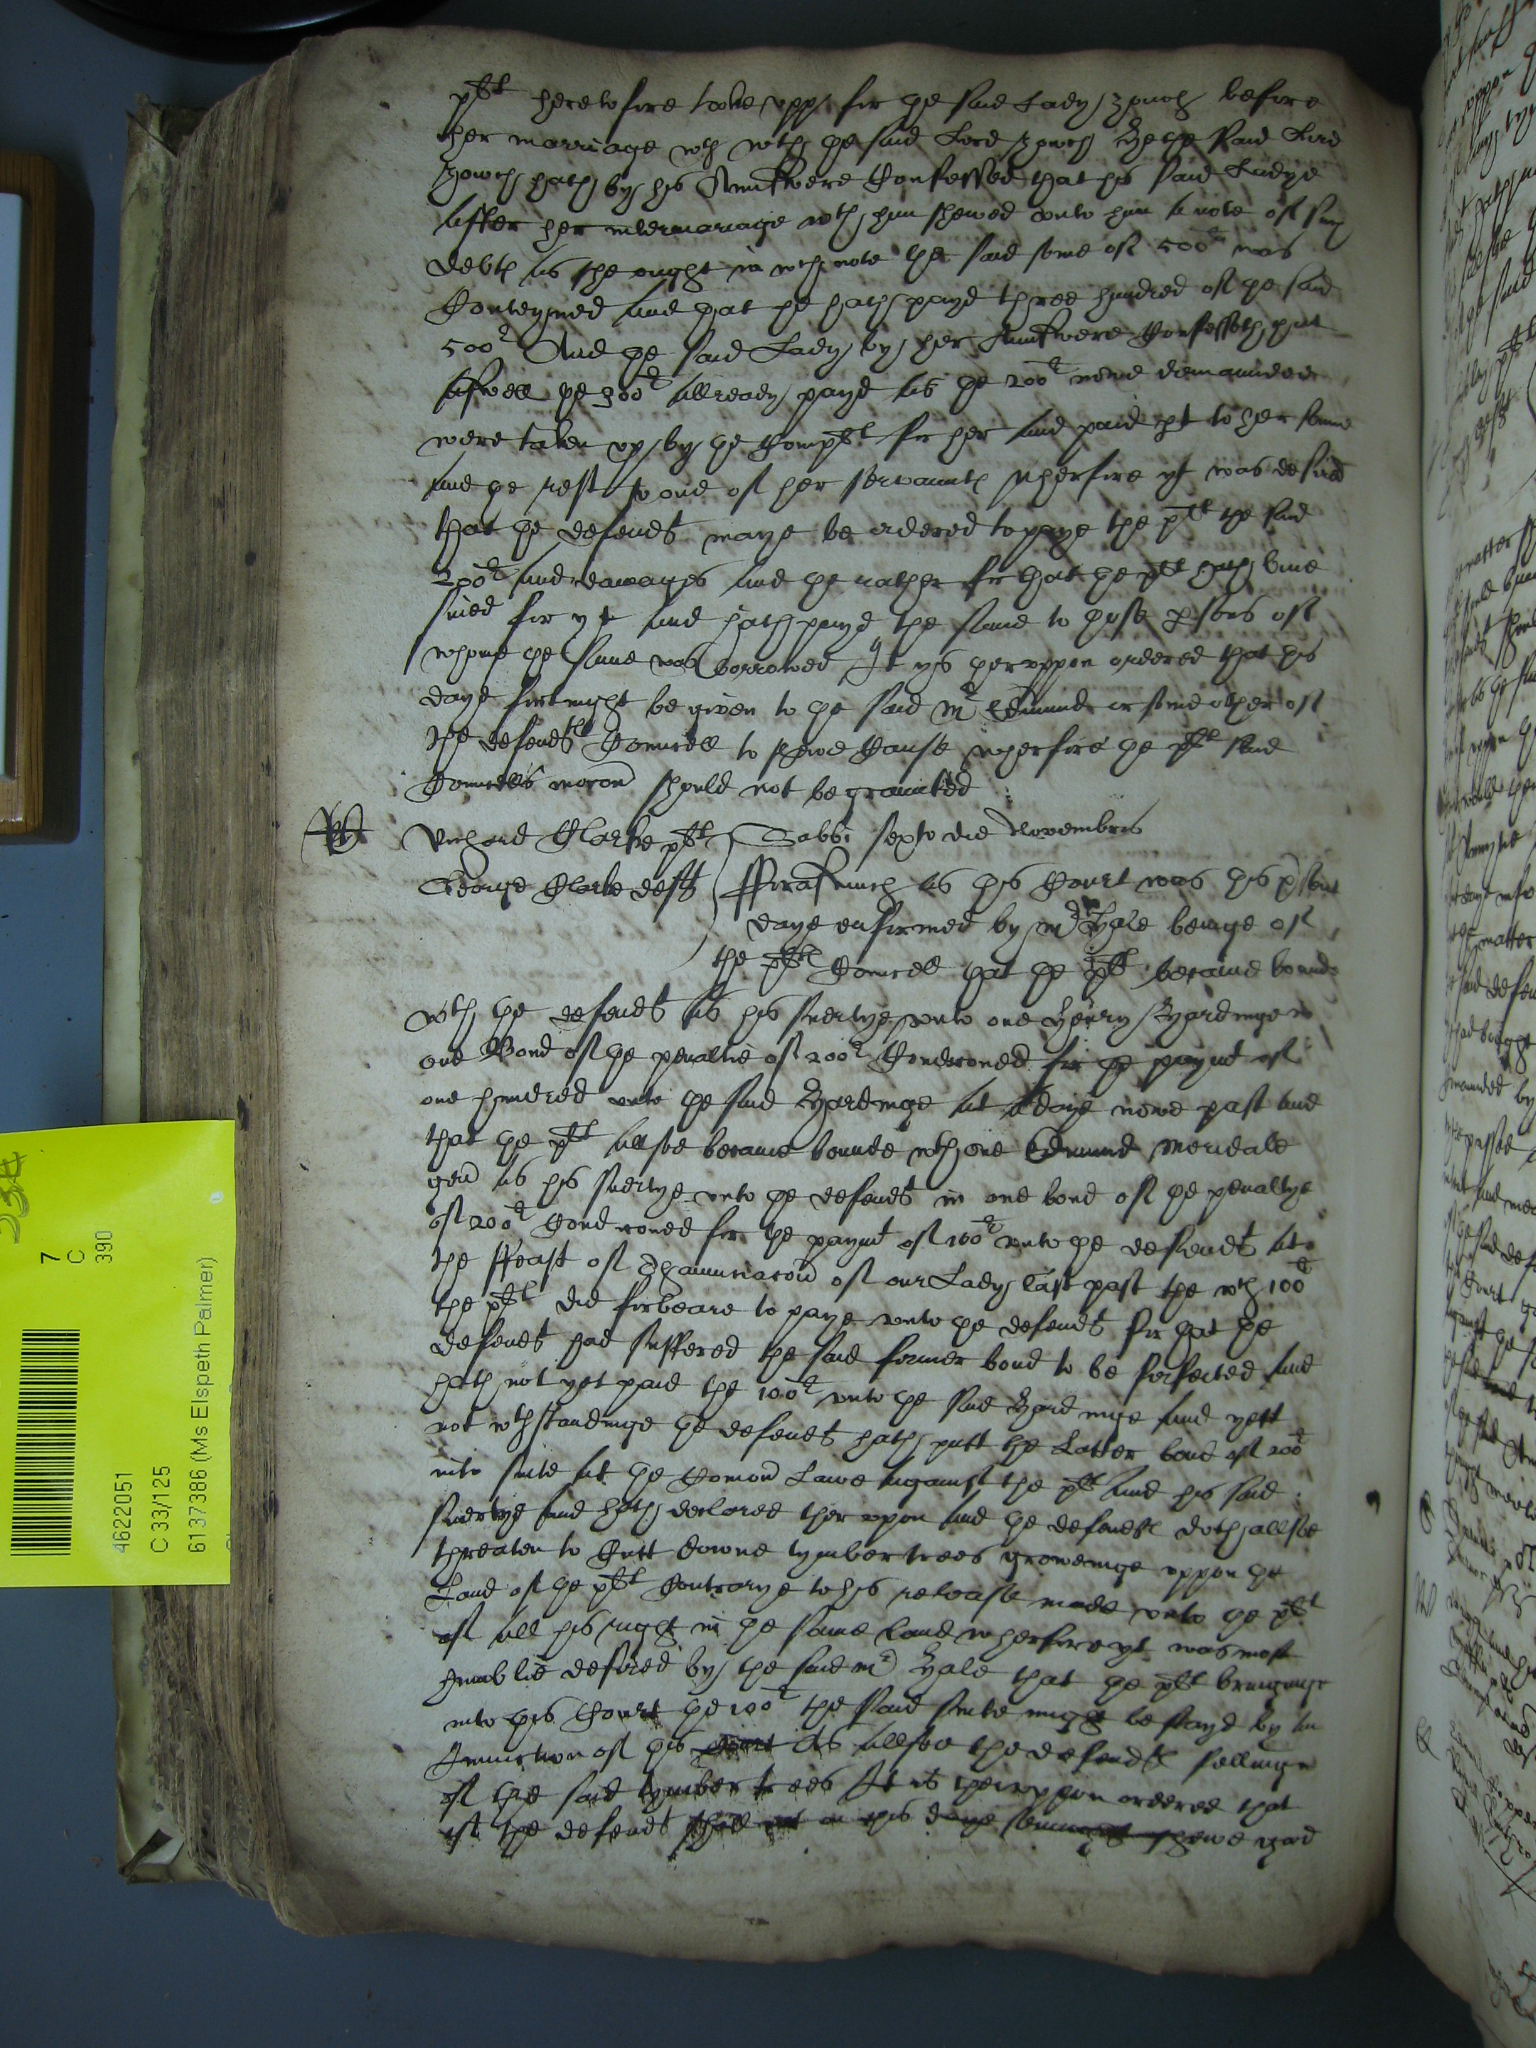 plt heretofore tooke upp for the said Lady Zouch before
her marriage wth wth the said Lord Zowch the said Lord
Zowch hath by his Aunswere Confessed that his said Ladye
after her intermariage wth him shewed unto him a note of such
debts as she ought in wch note the said some of 500li was
Conteyned and that he hath payd three hundred of the said
500li And the said Lady by her Aunswere Confesseth that
aswell the 300li allready payd as the 200li nowe demaunded
were taken up by the Complt for her and paid pt to her sonne
and the rest to one of her servaunts Wherfore yt was desired
that the defendts maye be ordered to paye the plt the said
200li and damages and the rather for that the plt hath bine
sued for yt and hath payd the same to those psons of
whome the same was borrowed It ys theruppon ordered that this
daye fortnight be given to the said Mr Edmunds or some other of
the defendts Councell to shewe Cause wherfore the plt said
Councells mocon should not be graunted
Richard Clarke plt Sabbi sexto die Novembris
George Clarke deft fforasmuch as this Court was this psent
daye enformed by Mr Hale beinge of
the plts Councell that the plt became bounde
wth the defendt as his suertye unto one Henry Hardinge in
one Bond of the penaltie of 200li Condiconed for the paymt of
one hundred unto the said Hardinge at a daye nowe past and
that the plt allsoe became bounde wth one Edmund
gen as his suertye unto the defendt in one bond of the penaltye
of 200li Condiconed for the paymt of 100li unto the defendt at
the ffeast of Thanunciacon of our Lady last past the wch 100li
the plt did forbeare to paye unto the defendt for that the
defendt had suffered the said former bond to be forfected and
hath not yet paid the 100li unto the said Hardinge and yett
not wthstandinge the defendt hath putt the Latter bond of 200li
into suite at the Comon Lawe against the plt and his said
suertye and hath declared therupon and the defendt doth allsoe
threaten to Cutt downe tymber trees groweinge uppon the
Land of the plt Contrarye to his release made unto the plt
of all his right in the same land wherfore yt was most
humblie desired by the said Mr Hale that the plt bringinge
into this Court the 100li the said suite might be stayd by an
Iniunction of this Court As allsoe the defendts fellinge
of the said tymber trees It is theruppon ordered that
if the defendt shall not on this daye shewe good
4622051
C 33/125
6137386 (Ms Elspeth Palmer)
7
C
390